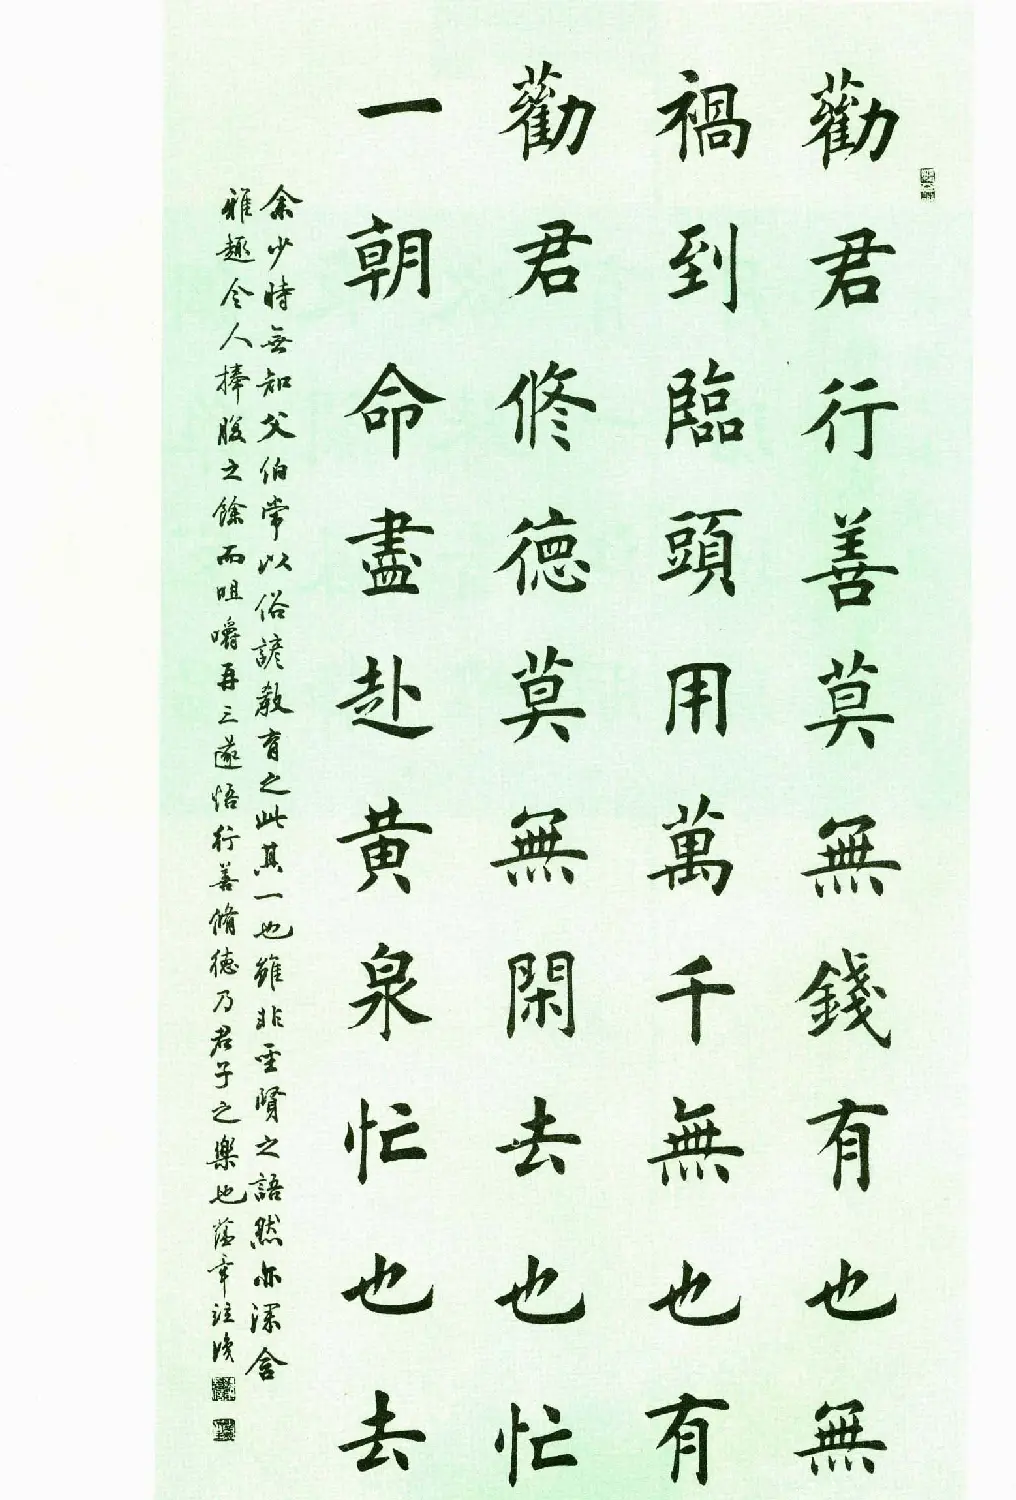 勸君行善莫無錢有也無
禍到臨頭用萬千無也有
勸君修德莫無閑去也忙
一朝命盡赴黃泉忙也去
余少時無知父伯常以俗諺教育之此其一也雖非聖賢之語然亦深含
雅趣令人捧腹之餘而咀嚼再三遂悟行善脩德乃君子之樂也